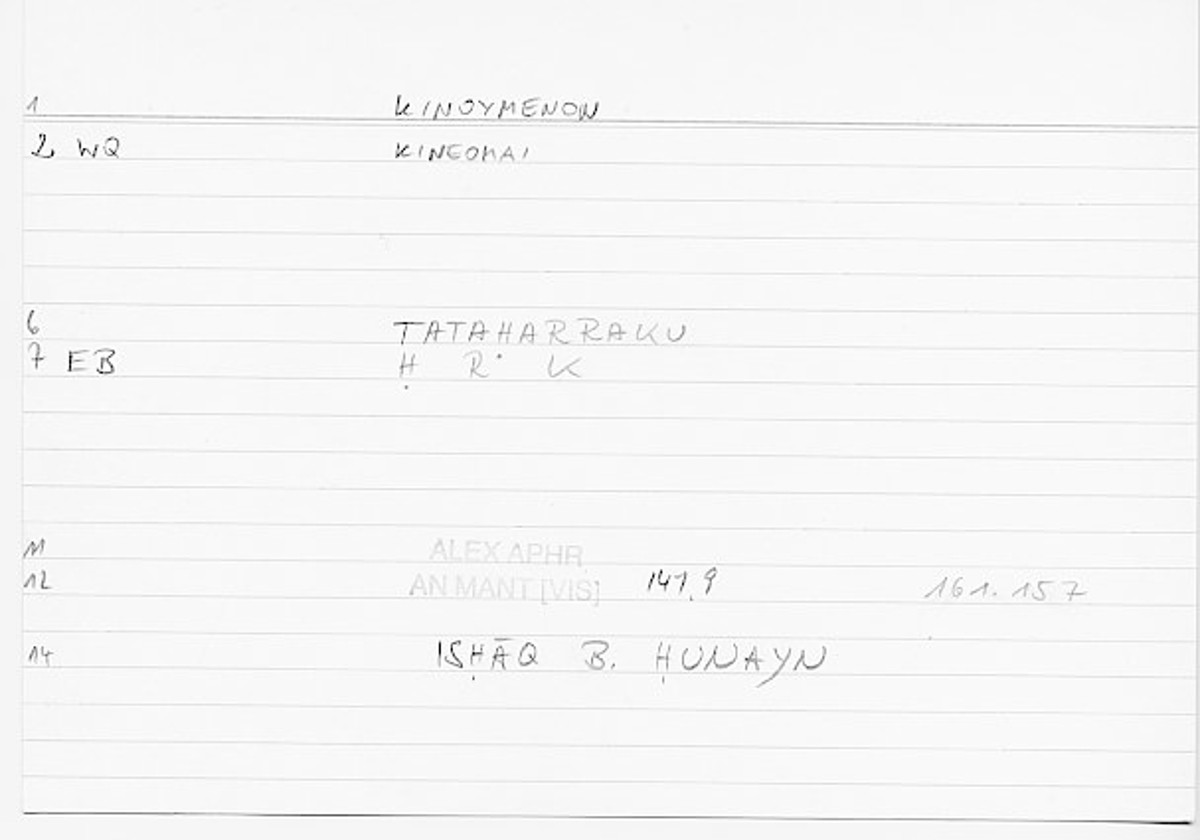 1 KINOYMENON
2 WQ KINEOMAI
6 TATAHARRAKU
7 EB Ḥ R K
11 ALEX APHR
12 AN MANT [VIS] 141,9 161.157
14 ISḤĀQ B. ḤUNAYN